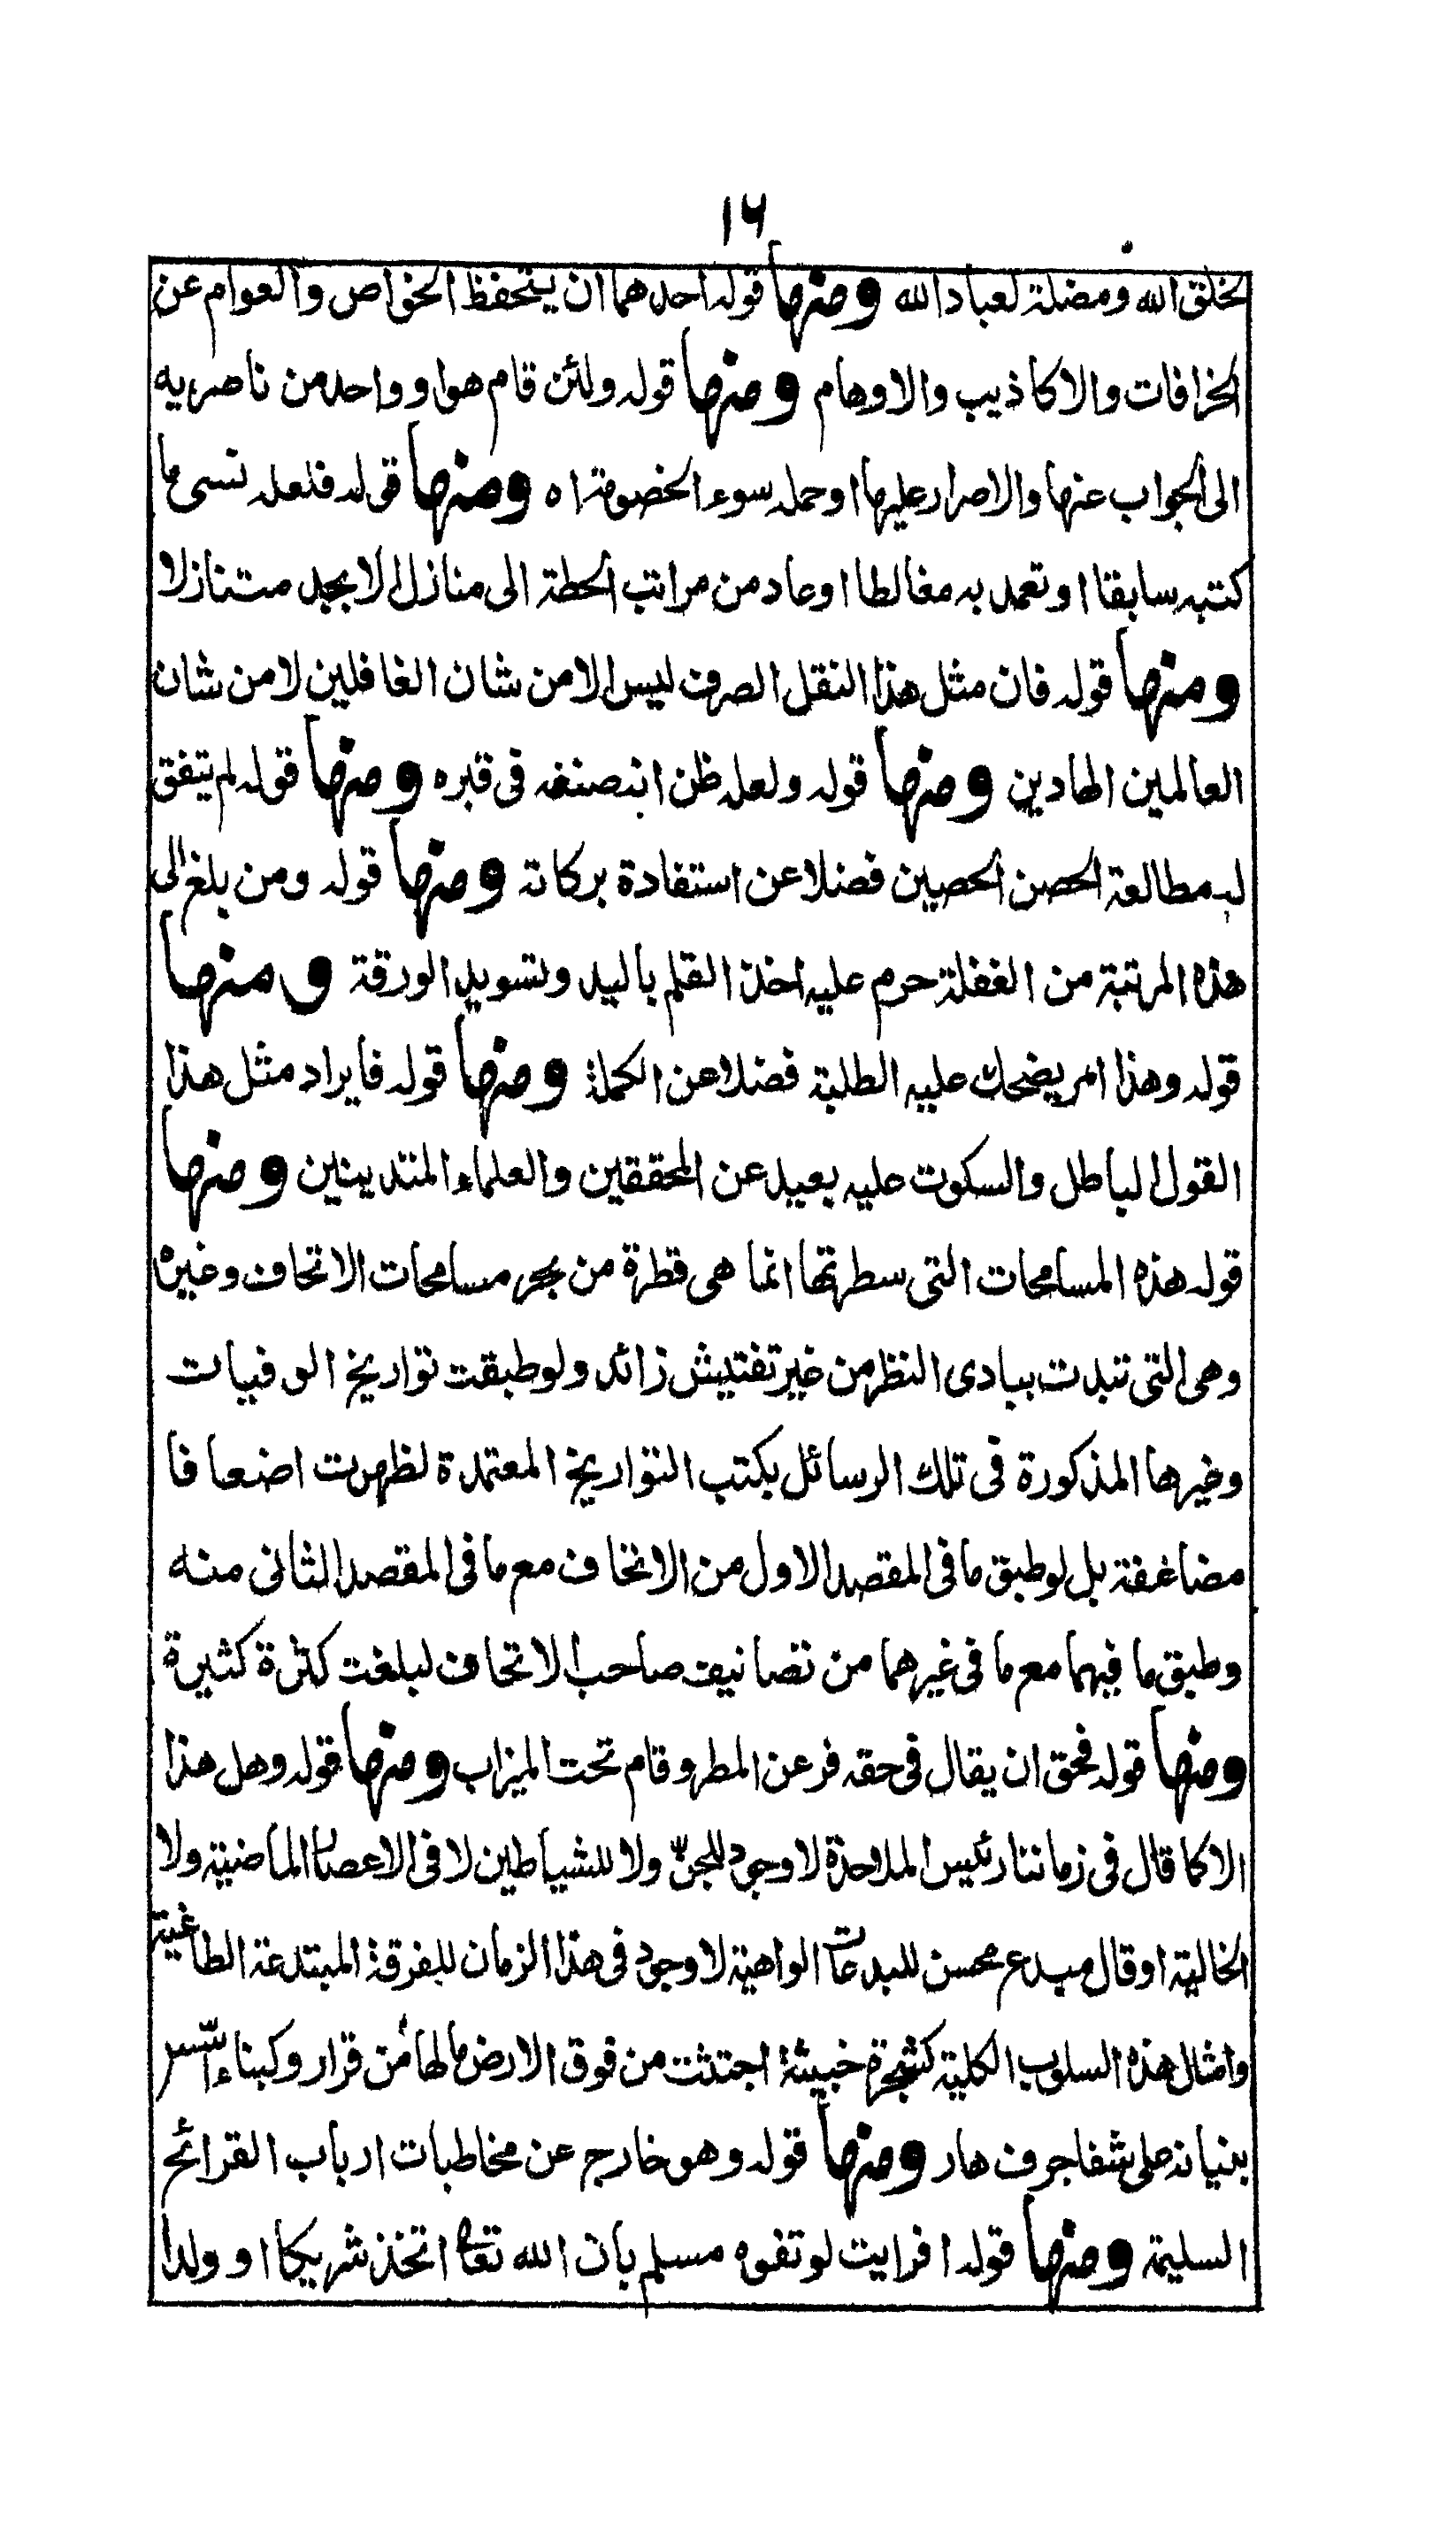 ١٦
لخلق الله ومضلة لعباد الله ومنها قوله احدهما ان يتحفظ الخواص والعوام عن
الخرافات والاكاذيب والاوهام ومنها قوله ولئن قام هو او واحد من ناصريه
الى الجواب عنها والاصرار عليها او حمله سوء الخصومة اه ومنها قوله فلعله نسى ما
كتبه سابقا او تعمد به مغالطا او عاد من مراتب الحطة الى منازل الابجد متنازلا
ومنها قوله فان مثل هذا النقل الصرف ليس الا من شان الغافلين لا من شان
العالمين الهادين ومنها قوله ولعله ظن انه صنفه فى قبره ومنها قوله لم يتفق
له مطالعة الحصن الحصين فضلا عن استفادة بركاته ومنها قوله ومن بلغ الى
هذه المرتبة من الغفلة حرم عليه اخذ القلم باليد وتسويد الورقة ومنها
قوله وهذا امر يضحك عليه الطلبة فضلا عن الكملة ومنها قوله فايراد مثل هذا
القول الباطل والسكوت عليه بعيد عن المحققين والعلماء المتدينين ومنها
قوله هذه المسامحات التى سطرتها انما هى قطرة من بحر مسامحات الاتحاف وغيره
وهى التى تبدت ببادى النظر من غير تفتيش زائد ولو طبقت تواريخ الوفيات
وغيرها المذكورة فى تلك الرسائل بكتب التواريخ المعتمدة لظهرت اضعافا
مضاعفة بل لو طبق ما فى المقصد الاول من الاتحاف مع ما فى المقصد الثانى منه
وطبق ما فيهما مع ما فى غيرهما من تصانيف صاحب الاتحاف لبلغت كثرة كثيرة
ومنها قوله فحق ان يقال فى حقه فر عن المطر وقام تحت الميزاب ومنها قوله وهل هذا
الا كما قال فى زماننا رئيس الملاحدة لا وجود للجن ولا للشياطين لا فى الاعصار الماضية ولا
الخالية او قال مبدع محسن للبدعات الواهية لا وجود فى هذا الزمان للفرقة المبتدعة الطاغية
وامثال هذه السلوب الكلية كشجرة خبيثة اجتثت من فوق الارض ما لها من قرار وكبناء اسس
بنيانه على شفا جرف هار ومنها قوله وهو خارج عن مخاطبات ارباب القرائح
السليمة ومنها قوله افرايت لو تفوه مسلم بان الله تعالى اتخذ شريكا او ولدا